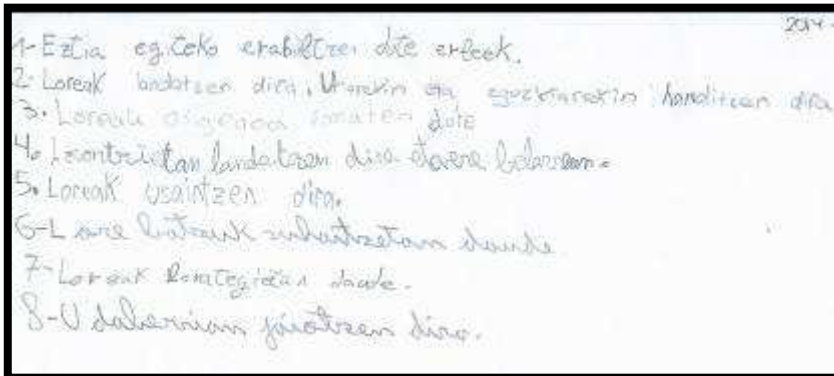 2014
1-Eztia egiteko erabiltzen dute erleek.
2-Loreak landatzen dira, Urarekin eta eguzkiarekin handitzen dira
3. Loreak oxigenoa ematen dute
4. landatzen dira eta belarrean.
5. Loreak usaintzen dira.
6-Lore batzuk zuhaitzetan daude
7-Loreak loretegietan daude.
8-Udaberrian jaiotzen dira.